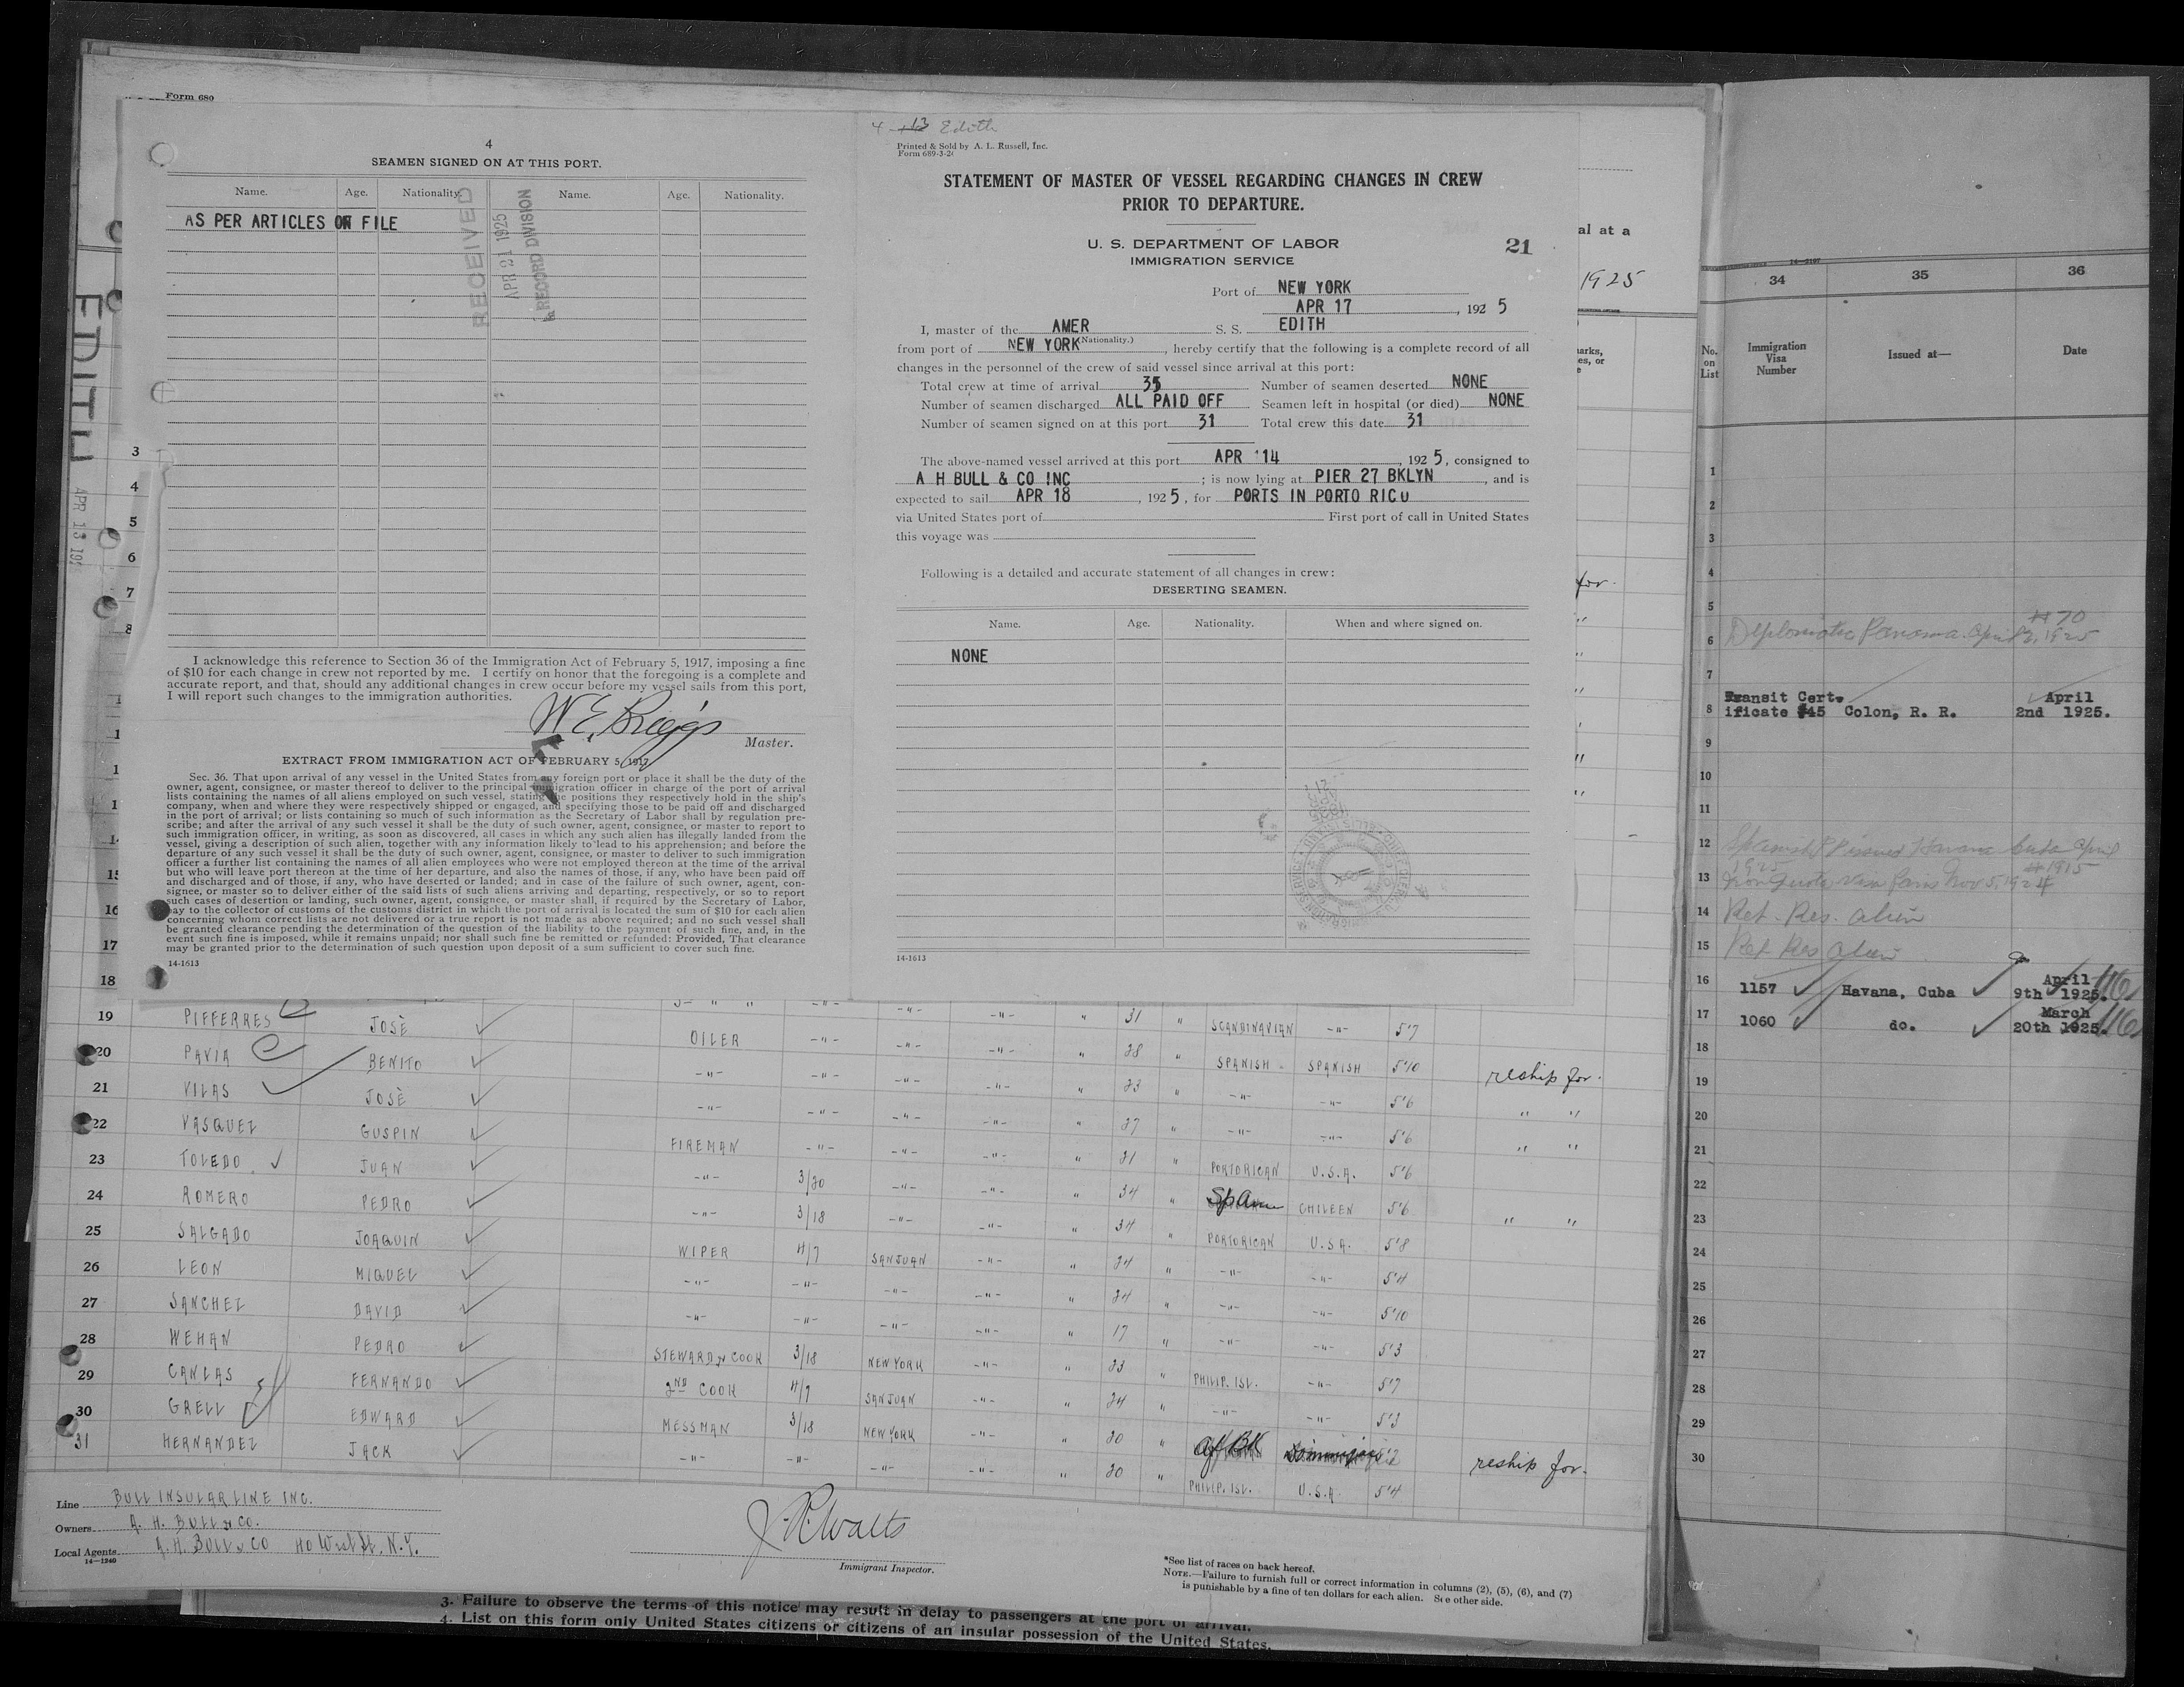 Form 680
4
SEAMEN SIGNED ON AT THIS PORT.
Name. Age. Nationality. Name. Age. Nationality.
AS PER ARTICLES ON FILE
RECEIVED
APR 21 1925
RECORD DIVISION
I acknowledge this reference to Section 36 of the Immigration Act of February 5, 1917, imposing a fine
of $10 for each change in crew not reported by me. I certify on honor that the foregoing is a complete and
accurate report, and that, should any additional changes in crew occur before my vessel sails from this port,
I will report such changes to the immigration authorities.
W E. Briggs
Master.
EXTRACT FROM IMMIGRATION ACT OF FEBRUARY 5, 1917
Sec. 36. That upon arrival of any vessel in the United States from any foreign port or place it shall be the duty of the
owner, agent, consignee, or master thereof to deliver to the principal immigration officer in charge of the port of arrival
lists containing the names of all aliens employed on such vessel, stating the positions they respectively hold in the ship's
company, when and where they were respectively shipped or engaged, and specifying those to be paid off and discharged
in the port of arrival; or lists containing so much of such information as the Secretary of Labor shall by regulation pre-
scribe; and after the arrival of any such vessel it shall be the duty of such owner, agent, consignee, or master to report to
such immigration officer, in writing, as soon as discovered, all cases in which any such alien has illegally landed from the
vessel, giving a description of such alien, together with any information likely to lead to his apprehension; and before the
departure of any such vessel it shall be the duty of such owner, agent, consignee, or master to deliver to such immigration
officer a further list containing the names of all alien employees who were not employed thereon at the time of the arrival
but who will leave port thereon at the time of her departure, and also the names of those, if any, who have been paid off
and discharged and of those, if any, who have deserted or landed; and in case of the failure of such owner, agent, con-
signee, or master so to deliver either of the said lists of such aliens arriving and departing, respectively, or so to report
such cases of desertion or landing, such owner, agent, consignee, or master shall, if required by the Secretary of Labor,
pay to the collector of customs of the customs district in which the port of arrival is located the sum of $10 for each alien
concerning whom correct lists are not delivered or a true report is not made as above required; and no such vessel shall
be granted clearance pending the determination of the question of the liability to the payment of such fine, and, in the
event such fine is imposed, while it remains unpaid; nor shall such fine be remitted or refunded: Provided, That clearance
may be granted prior to the determination of such question upon deposit of a sum sufficient to cover such fine.
14-1613
EDITH
4 13 Edith
Printed & Sold by A. L. Russell, Inc.
Form 689-3-2
STATEMENT OF MASTER OF VESSEL REGARDING CHANGES IN CREW
PRIOR TO DEPARTURE.
U. S. DEPARTMENT OF LABOR
IMMIGRATION SERVICE
21
Port of NEW YORK
APR 17, 192 5
I, master of the AMER S. S. EDITH
(Nationality.)
from port of NEW YORK, hereby certify that the following is a complete record of all
changes in the personnel of the crew of said vessel since arrival at this port:
Total crew at time of arrival 35 Number of seamen deserted NONE
Number of seamen discharged ALL PAID OFF Seamen left in hospital (or died) NONE
Number of seamen signed on at this port 31 Total crew this date 31
The above-named vessel arrived at this port APR 14, 192 5, consigned to
A H BULL & CO INC; is now lying at PIER 27 BKLYN, and is
expected to sail APR 18, 192 5, for PORTS IN PORTO RICO
via United States port of First port of call in United States
this voyage was
Following is a detailed and accurate statement of all changes in crew:
DESERTING SEAMEN.
Name. Age. Nationality. When and where signed on.
NONE
14-1613
al at a
1925
34 35 36
No. on List Immigration Visa Number Issued at— Date
1
2
3
4
5
#70
6 Panama April 2, 1925
7
8 Transit Cert. ificate #45 Colon, R. R. April 2nd 1925.
9
10
11
12 Havana Cuba April
1925
13 Non Quota visa Paris Nov 5, 1924
14 Ret. Res. alien
15 Ret Res alien
16 1157 Havana, Cuba April 9th 1925.
17 1060 do. March 20th 1925.
18
19
20
21
22
23
24
25
26
27
28
29
30
19 PIFFERRES JOSÈ 31 SCANDINAVIAN -"- 5'7
20 PAVIA BENITO OILER -"- -"- -"- " 28 " SPANISH SPANISH 5'10 reship for.
21 VILAS JOSÈ -"- -"- -"- -"- " 23 " -"- -"- 5'6 " "
22 VASQUEZ GUSPIN -"- -"- -"- -"- " 27 " -"- -"- 5'6 " "
23 TOLEDO JUAN FIREMAN -"- -"- -"- " 21 " PORTORICAN U.S.A. 5'6
24 ROMERO PEDRO -"- 3/20 -"- -"- " 34 " Span CHILEEN 5'6 " "
25 SALGADO JOAQUIN -"- 3/18 -"- -"- " 34 " PORTORICAN U.S.A. 5'8
26 LEON MIQUEL WIPER 4/7 SANJUAN -"- " 24 " -"- -"- 5'4
27 SANCHEZ DAVID -"- -"- -"- -"- " 24 " -"- -"- 5'10
28 WEHAN PEDRO -"- -"- -"- -"- " 17 " -"- -"- 5'3
29 CANLAS FERNANDO STEWARD & COOK 3/18 NEW YORK -"- " 23 " PHILIP. ISL. -"- 5'7
30 GRELL EDWARD 2ND COOK 4/7 SANJUAN -"- " 24 " -"- -"- 5'3
31 HERNANDEZ JACK MESSMAN 3/18 NEW YORK -"- " 20 " af Bk 5'2 reship for.
-"- -"- -"- -"- " 20 " PHILIP. ISL. U.S.A 5'4
Line BULL INSULAR LINE INC.
Owners A. H. BULL & CO.
Local Agents A. H. BULL & CO 40 West St, N.Y.
14—1240
Immigrant Inspector.
*See list of races on back hereof.
NOTE.—Failure to furnish full or correct information in columns (2), (5), (6), and (7)
is punishable by a fine of ten dollars for each alien. See other side.
3. Failure to observe the terms of this notice may result in delay to passengers at the port of arrival.
4. List on this form only United States citizens or citizens of an insular possession of the United States.